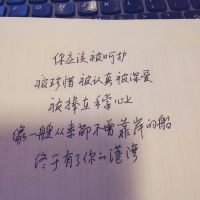 你应该被呵护
被珍惜被认真被深爱
被捧在手掌心上
像一艘从来都不曾靠岸的船
终于有了你的港湾